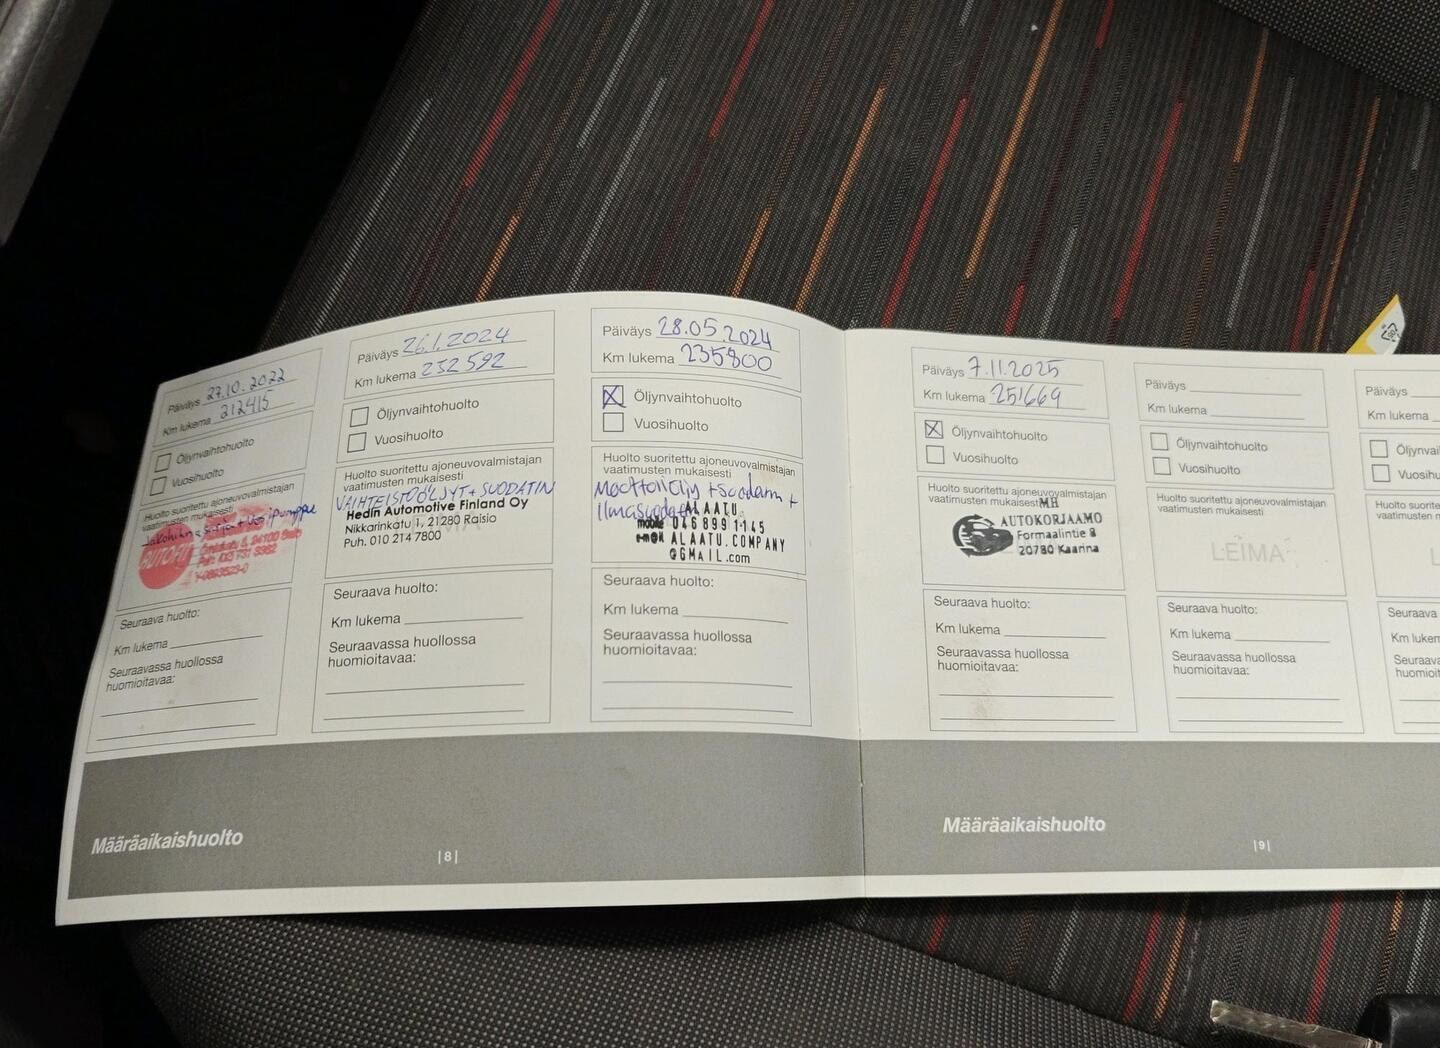 Päiväys 27.10.2022
Km lukema 212415
Öljynvaihtohuolto
Vuosihuolto
Huolto suoritettu ajoneuvovalmistajan
vaatimusten mukaisesti
Seuraava huolto:
Km lukema
Seuraavassa huollossa
huomioitavaa:
Päiväys 26.1.2024
Km lukema 232592
Öljynvaihtohuolto
Vuosihuolto
Huolto suoritettu ajoneuvovalmistajan
vaatimusten mukaisesti
VAIHTEISTOÖLJYT + SUODATIN
Hedin Automotive Finland Oy
Nikkarinkatu 1, 21280 Raisio
Puh. 010 214 7800
Seuraava huolto:
Km lukema
Seuraavassa huollossa
huomioitavaa:
Päiväys 28.05.2024
Km lukema 235800
Öljynvaihtohuolto
Vuosihuolto
Huolto suoritettu ajoneuvovalmistajan
vaatimusten mukaisesti
ALAATU
mobile 046 899 1145
e-mail ALAATU.COMPANY
@GMAIL.com
Seuraava huolto:
Km lukema
Seuraavassa huollossa
huomioitavaa:
Määräaikaishuolto
|8|
Päiväys 7.11.2025
Km lukema 251669
Öljynvaihtohuolto
Vuosihuolto
Huolto suoritettu
vaatimusten mukaisesti
MH
AUTOKORJAAMO
Formaalintie 8
20780 Kaarina
Seuraava huolto:
Km lukema
Seuraavassa huollossa
huomioitavaa:
Päiväys
Km lukema
Öljynvaihtohuolto
Vuosihuolto
Huolto suoritettu ajoneuvovalmistajan
vaatimusten mukaisesti
LEIMA
Seuraava huolto:
Km lukema
Seuraavassa huollossa
huomioitavaa:
Päiväys
Km lukema
Öljynva
Vuosihu
Huolto suoritettu
vaatimusten m
L
Seuraava
Km lukem
Seuraava
huomioit
Määräaikaishuolto
|9|